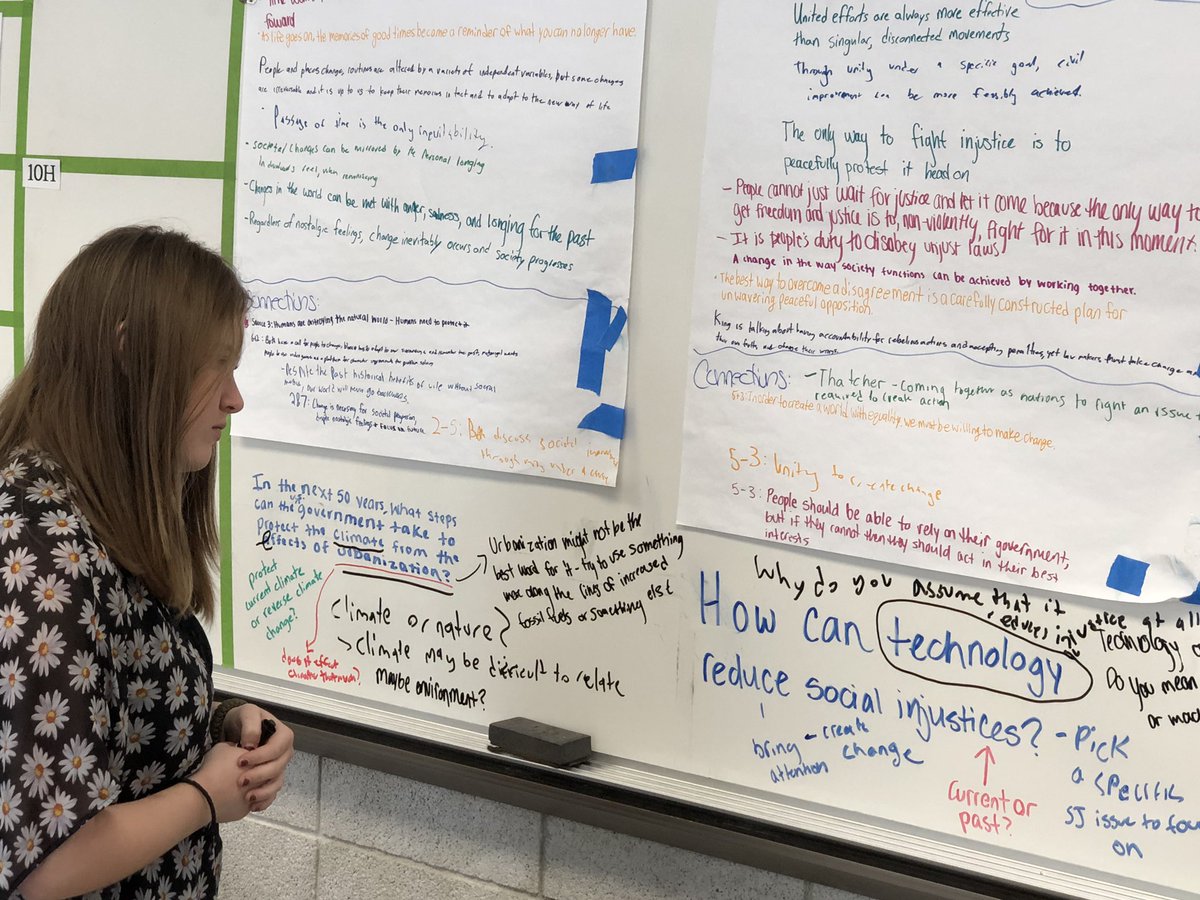 10H
foward
As life goes on, the memories of good times become a reminder of what you can no longer have.
People and places change, routines are altered by a variety of independent variables, but some changes
are irreversable and it is up to us to keep their memories in tact and to adapt to the new way of life
Passage of time is the only inevitability.
- societal changes can be mirrored by the Personal longing
Individuals feel, when reminiscing
- Changes in the world can be met with anger, sadness, and longing for the past
- Regardless of nostalgic feelings, change inevitably occurs and society progresses
Connections:
Source 3: Humans are destroying the natural world - Humans need to protect it
- Despite the Past historical benefits of life without social
media, our world will never go backwards.
2B7: Change is necessary for societal progression,
2-5: Both discuss societal
through unity under a
In the next 50 years, what steps
can the US government take to
protect the climate from the
effects of urbanization?
protect
current climate
or reverse climate
change?
Urbanization might not be the
best word for it - try to use something
more along the lines of increased
fossil fuels or something else
Climate or nature
> Climate may be difficult to relate
maybe environment?
doesn't effect
climate that much?
United efforts are always more effective
than singular, disconnected movements
Through unity under a specific goal, civil
improvement can be more feasibly achieved.
The only way to fight injustice is to
peacefully protest it head on
- People cannot just wait for justice and let it come because the only way to
get freedom and justice is to, non-violently, fight for it in this moment.
- It is people's duty to disobey unjust laws
A change in the way society functions can be achieved by working together.
- The best way to overcome a disagreement is a carefully constructed plan for
unwavering peaceful opposition.
King is talking about having accountability for rebellious actions and accepting penalties, yet law makers must take charge
Connections: - Thatcher - Coming together as nations to fight an issue
required to create action
5-3: In order to create a world with equality, we must be willing to make change.
5-3: Unity to create change
5-3: People should be able to rely on their government,
but if they cannot then they should act in their best
interests
Why do you assume that it
reduces injustice at all
How can technology
reduce social injustices?
Technology
Do you mean
or
bring
attention
- create
change
current or
past?
- Pick
a specific
SJ issue to
on